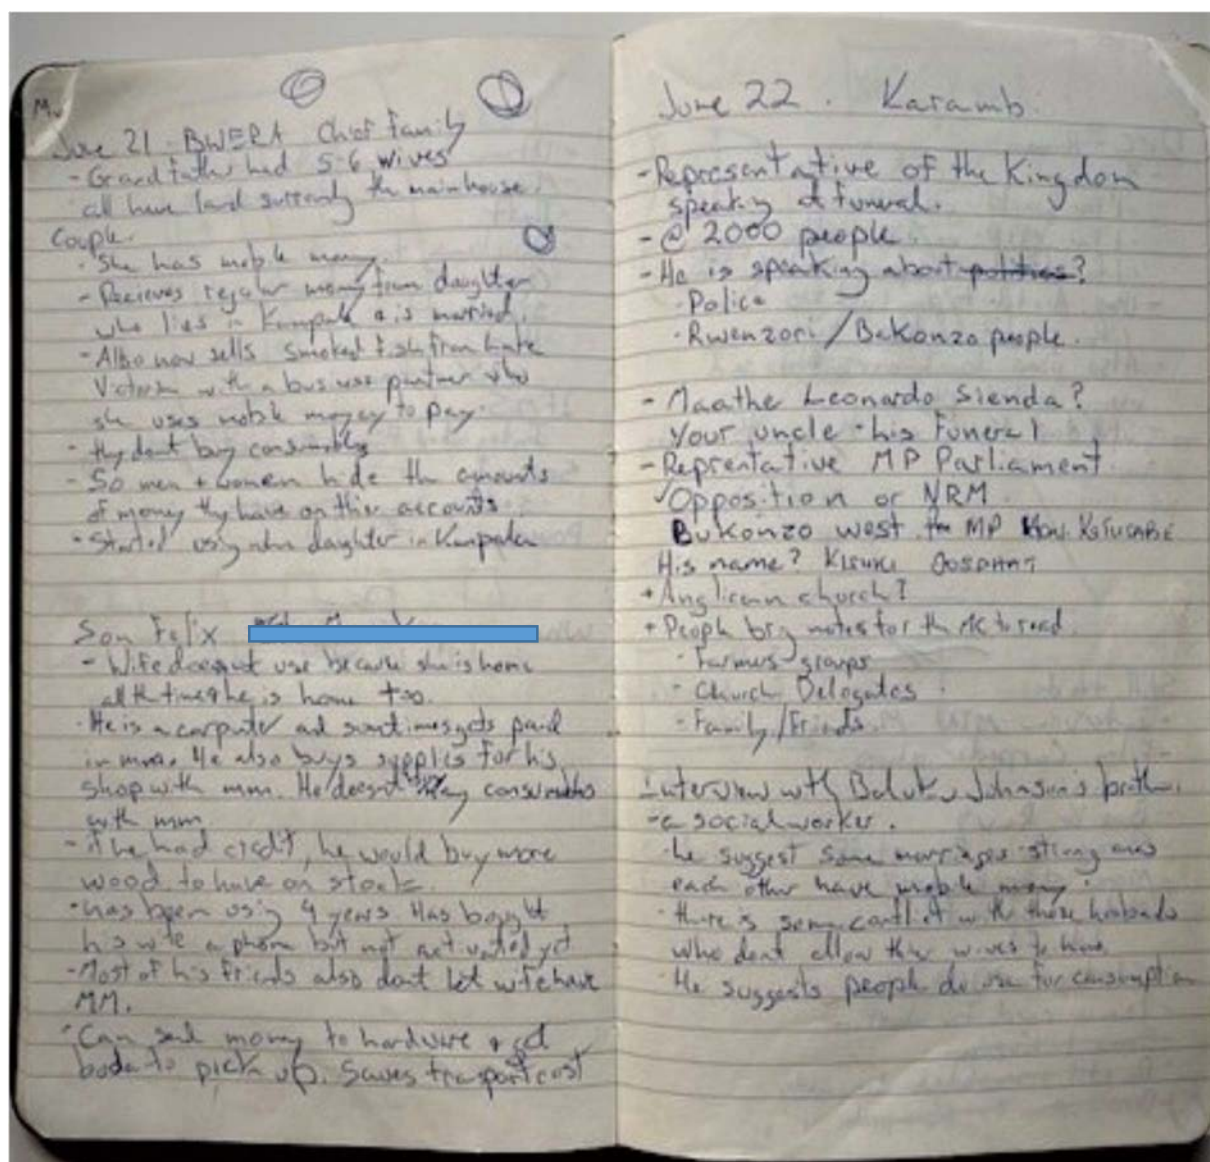 June 21. BWERA Chief Family
- Grandfather had 5-6 wives
all have land surrondy the mainhouse.
Couple.
- She has mobile money.
- Recieves regular money from daughter
who lies in Kampala & is married.
- Also now sells smoked fish from Lake
Victoria with a business partner who
she uses mobile money to pay.
- they dont buy consumables
- So men + women hide the amounts
of money they have on thier accounts
- Started using when daughter in Kampala
Son Felix
- Wife doesnt use because she is home
all the time & he is home too.
- He is a carpenter and sometimes gets paid
in mm. He also buys supplies for his
shop with mm. He doesnt buy consumables
with mm.
- if he had credit, he would buy more
wood to have on stock.
- has been using 4 years Has bought
his wife a phone but not activated yet
- Most of his friends also dont let wife have
MM.
- Can send money to hardware & get
boda to pick up. Saves transport cost
June 22. Karamb.
- Representative of the Kingdom
speaking at funeral.
- @ 2000 people.
- He is speaking about politics?
- Police
- Rwenzori/Bakonzo people.
- Maathe Leonardo Sienda?
Your uncle - his funeral
- Reprentative MP Parliament
Opposition or NRM
Bukonzo west the MP Hon. Katusabe
His name? Kisuki
+ Anglican church?
+ People brg notes for the MC to read
- Farmers groups
- Church Delegates
- Family/Friends.
Interview with Baluku Johnson's brother.
- a social worker.
- he suggest some marriages strong ones
each other have mobile money.
- there is some conflict with those husbands
who dont allow their wives to have
- He suggests people do use for consumption